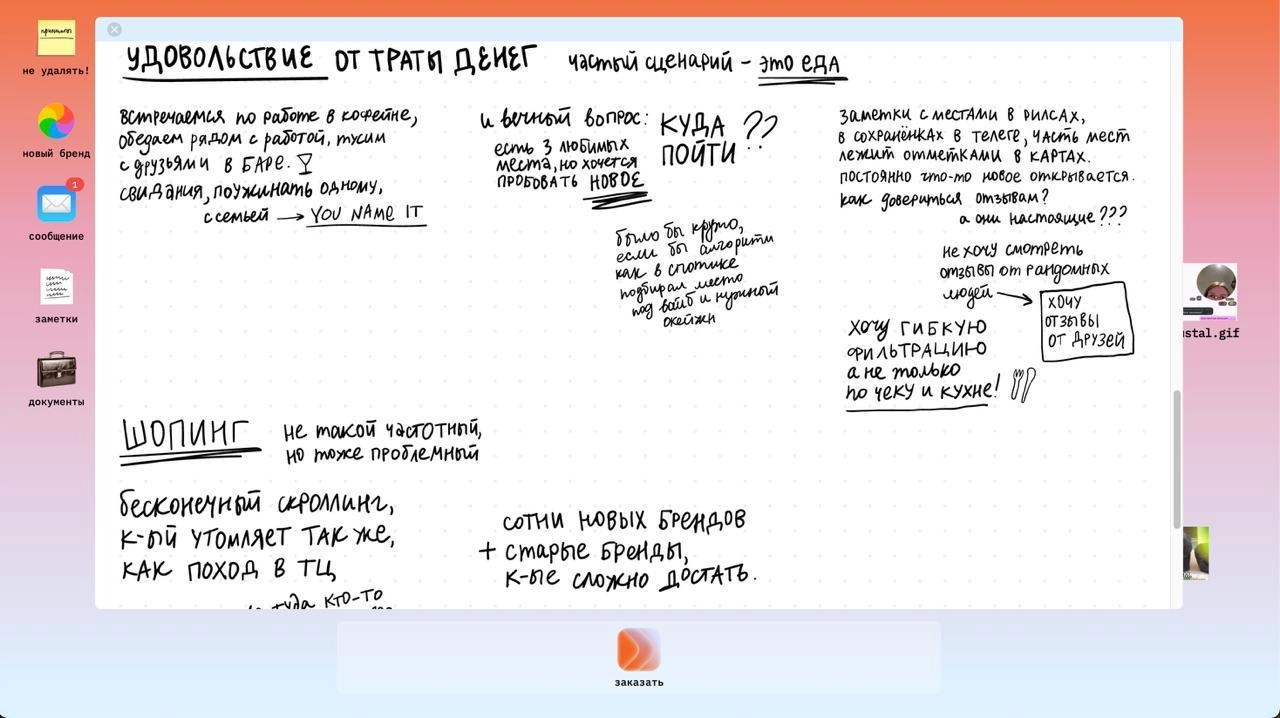 УДОВОЛЬСТВИЕ ОТ ТРАТЫ ДЕНЕГ
частый сценарий – это еда
встречаемся по работе в кофейне,
обедаем рядом с работой, тусим
с друзьями в БАРЕ.
свидания, поужинать одному,
с семьей → YOU NAME IT
и вечный вопрос:
КУДА
ПОЙТИ ??
есть 3 любимых
места, но хочется
пробовать НОВОЕ
было бы круто,
если бы алгоритм
как в спотике
подбирал место
под вайб и нужный
окейжн
заметки с местами в рилсах,
в сохранёнках в телеге, часть мест
лежит отметками в картах.
постоянно что-то новое открывается.
как довериться отзывам?
а они настоящие???
не хочу смотреть
отзывы от рандомных
людей →
хочу
отзывы
от друзей
хочу гибкую
фильтрацию
а не только
по чеку и кухне!
ШОПИНГ
не такой частотный,
но тоже проблемный
бесконечный скроллинг,
к-ый утомляет так же,
как поход в ТЦ
туда кто-то
сотни новых брендов
+ старые бренды,
к-ые сложно достать.
не удалять!
новый бренд
1
сообщение
заметки
документы
ustal.gif
заказать